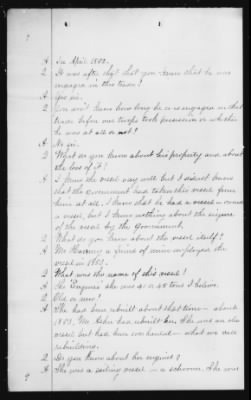 A In April 1882.
Q It was after that that you knew that he was
engaged in this trade?
A Yes sir.
Q You don't know how long he was engaged in that
trade before our troops took possession or whether
he was at all or not?
A No sir.
Q What do you know about his property and about
the loss of it?
A I knew the vessel very well but I did not know
that the Government had taken this vessel from
him at all. I knew that he had a vessel owned
a vessel, but I know nothing about the seizure
of the vessel by the Government.
Q What do you know about the vessel itself?
A Mr. a friend of mine employed the
vessel in
Q What was the name of this vessel?
A she was a 45 tons I believe.
Q Old or new?
A She had been rebuilt about that time - about
Mr. rebuilt her. She was an old
vessel but had been overhauled - what we call
rebuilding.
Q Do you know about her engines?
A She was a sailing vessel - a schooner. She was